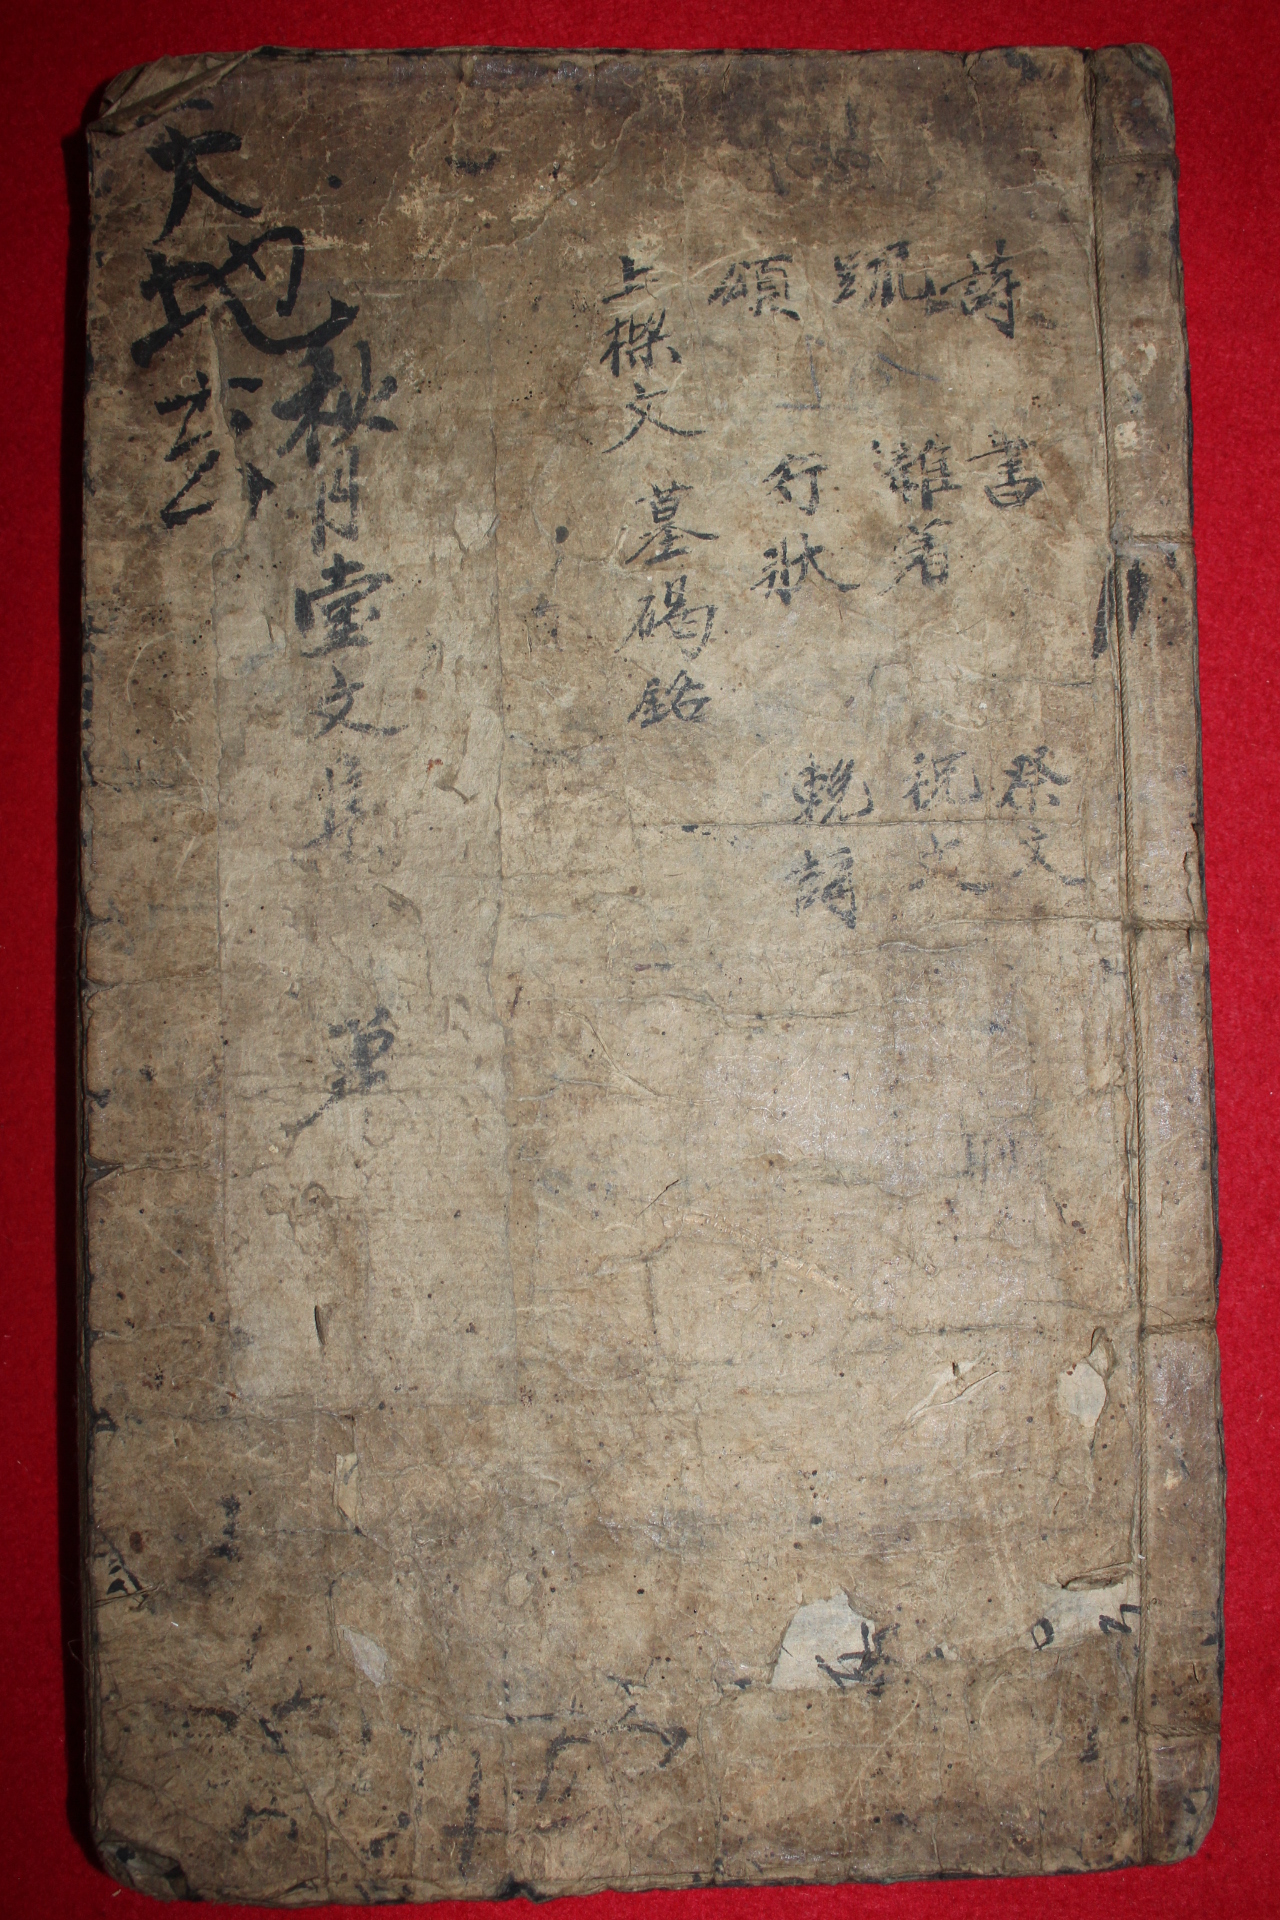 詩 書 祭文
疏 雜著 祝文
頌 行狀 輓詞
上樑文 墓碣銘
秋月堂文集 單
天地